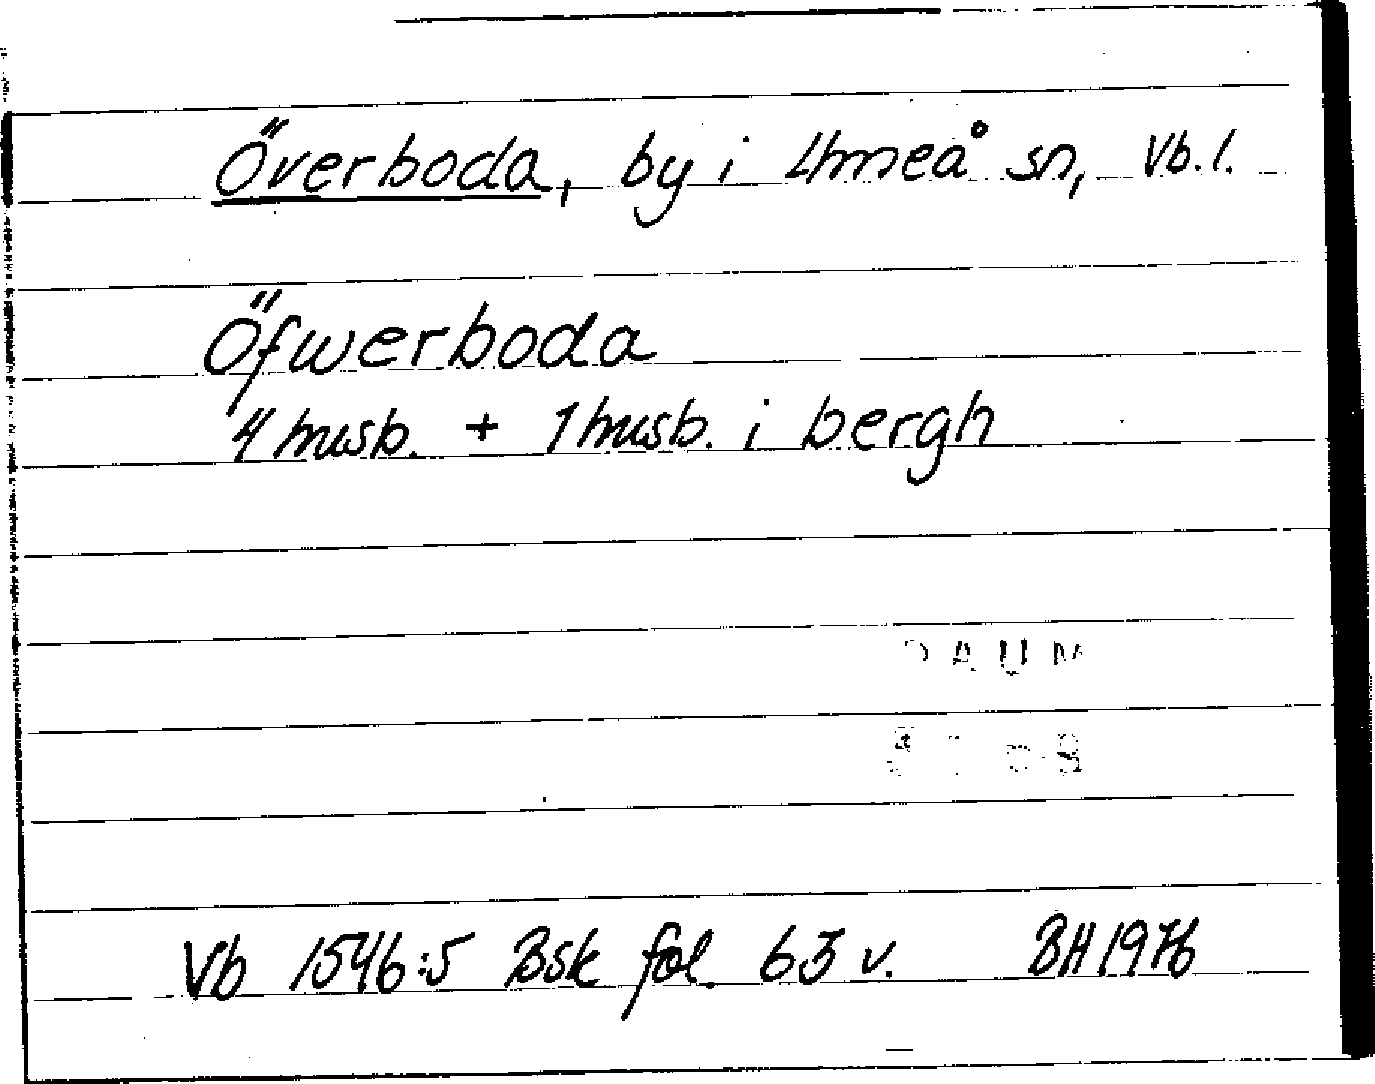 Överboda, by i Umeå sn, Vb.l.
Öfwerboda
4 husb. + 1 husb. i bergh
DAUM
Vb 1546:5 Bsk fol. 63 v. BH 1976